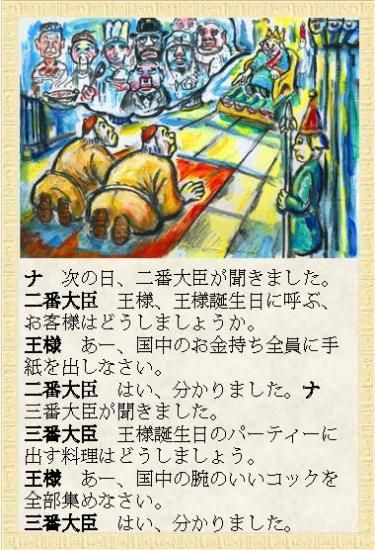 ナ　次の日、二番大臣が聞きました。
二番大臣　王様、王様誕生日に呼ぶ、
お客様はどうしましょうか。
王様　あー、国中のお金持ち全員に手
紙を出しなさい。
二番大臣　はい、分かりました。ナ
三番大臣が聞きました。
三番大臣　王様誕生日のパーティーに
出す料理はどうしましょう。
王様　あー、国中の腕のいいコックを
全部集めなさい。
三番大臣　はい、分かりました。